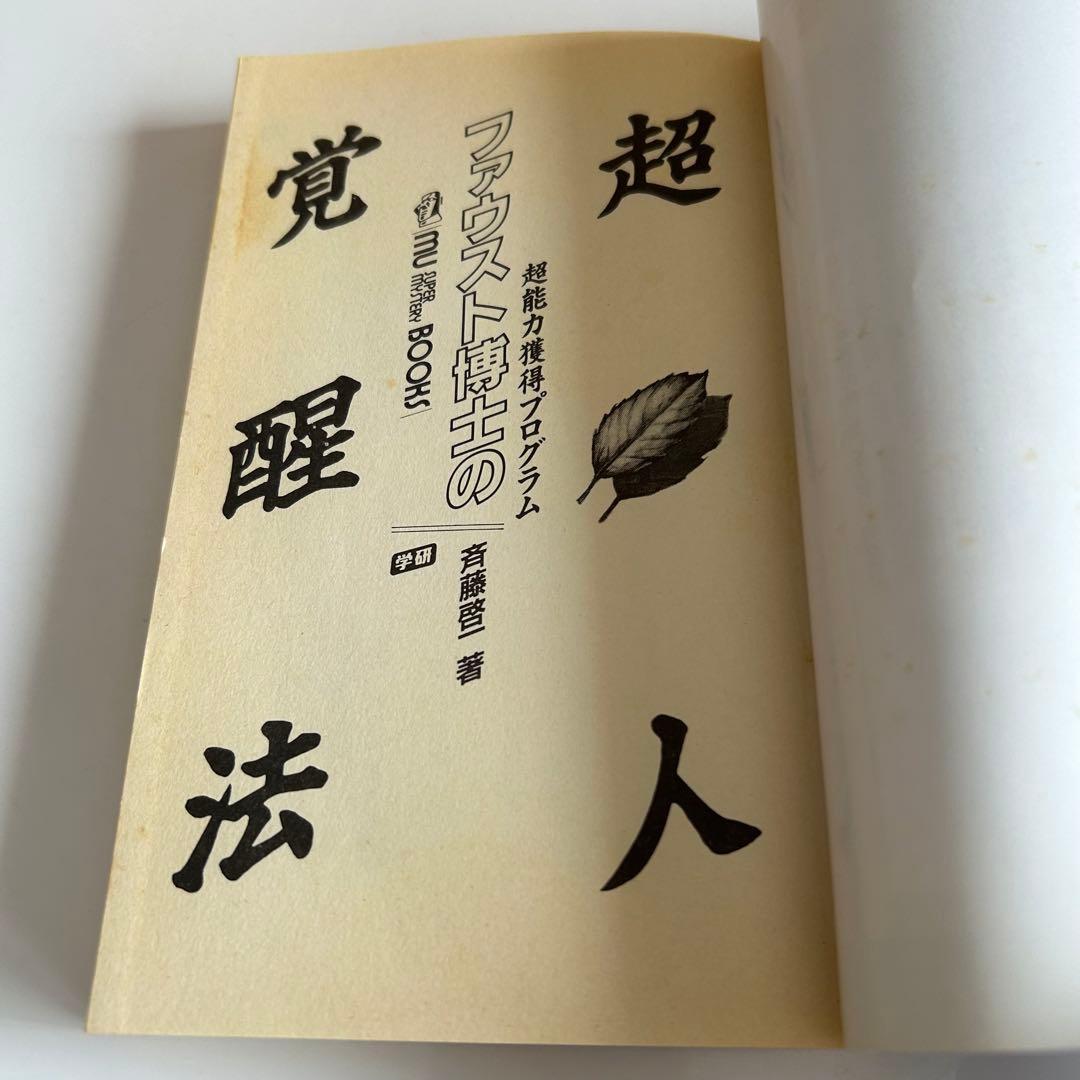 超人
超能力獲得プログラム
ファウスト博士の
MU SUPER MYSTERY BOOKS
覚醒法
斉藤啓一 著
学研